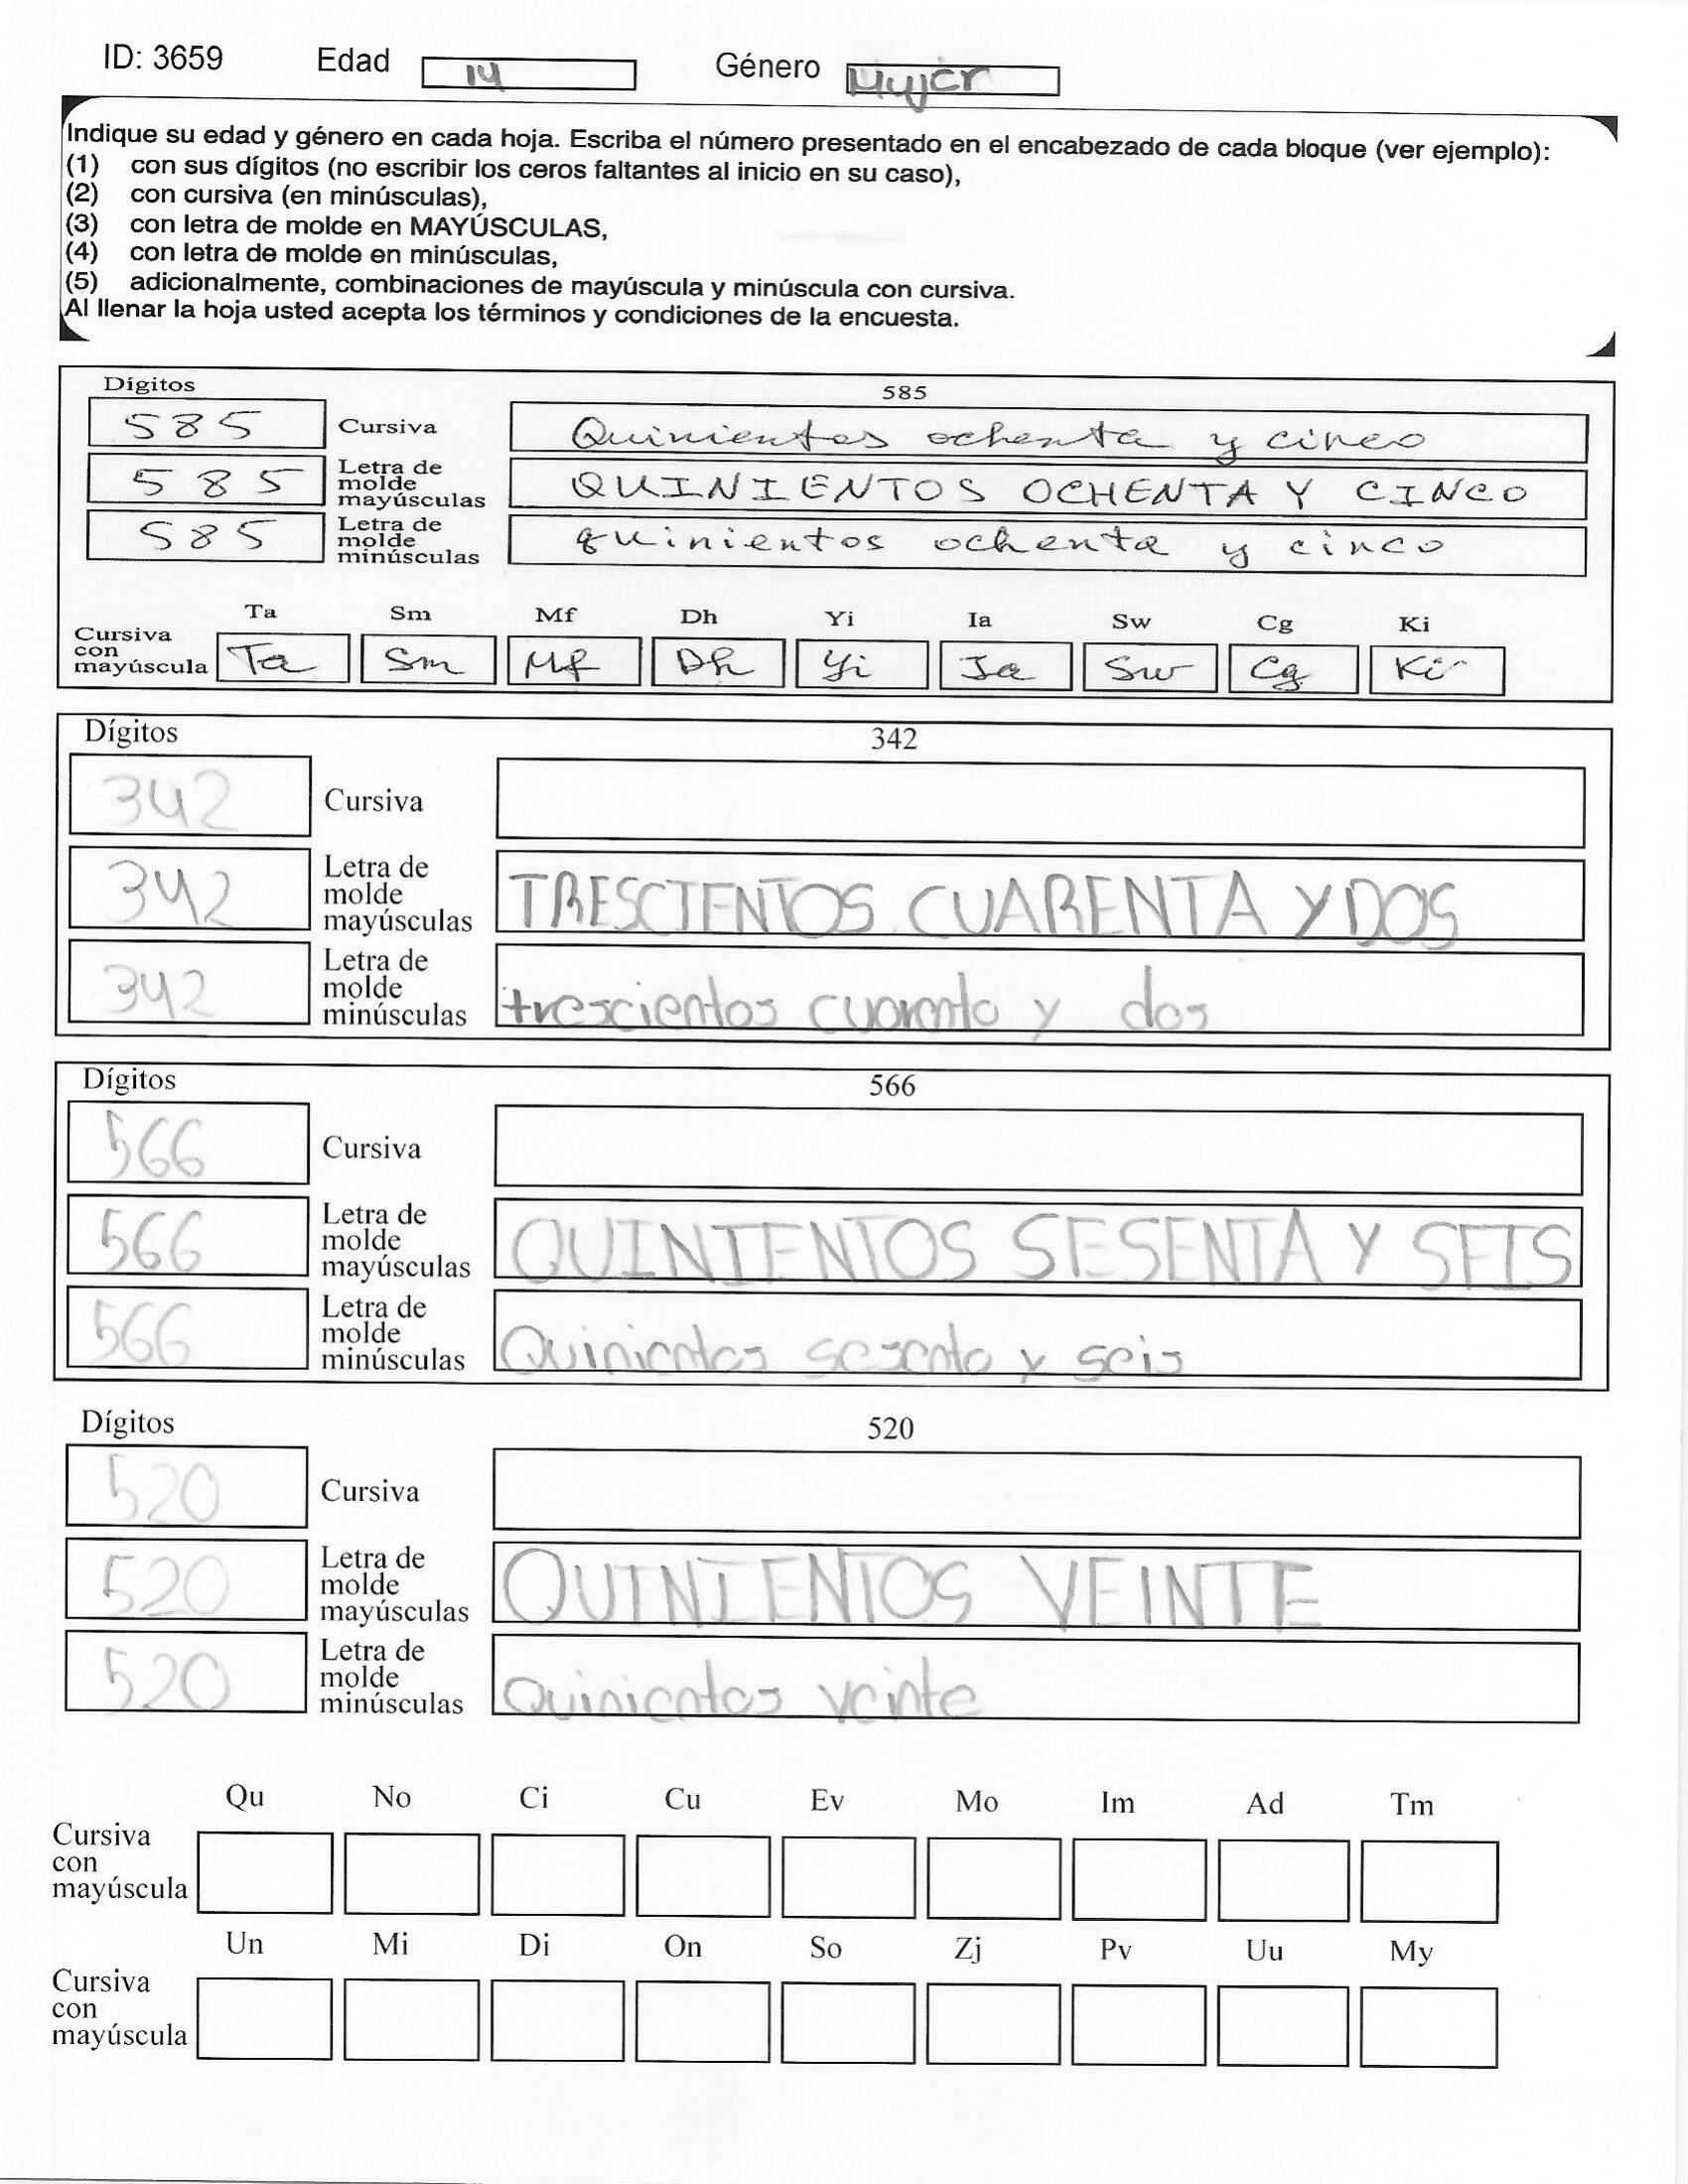 ID: 3659 Edad 14 Género Mujer
Indique su edad y género en cada hoja. Escriba el número presentado en el encabezado de cada bloque (ver ejemplo):
(1) con sus dígitos (no escribir los ceros faltantes al inicio en su caso),
(2) con cursiva (en minúsculas),
(3) con letra de molde en MAYÚSCULAS,
(4) con letra de molde en minúsculas,
(5) adicionalmente, combinaciones de mayúscula y minúscula con cursiva.
Al llenar la hoja usted acepta los términos y condiciones de la encuesta.
Dígitos 585
585 Cursiva Quinientos ochenta y cinco
585 Letra de molde mayúsculas QUINIENTOS OCHENTA Y CINCO
585 Letra de molde minúsculas quinientos ochenta y cinco
Ta Sm Mf Dh Yi Ia Sw Cg Ki
Cursiva con mayúscula Ta Sm Mf Dh Yi Ia Sw Cg Ki
Dígitos 342
342 Cursiva
342 Letra de molde mayúsculas TRESCIENTOS CUARENTA Y DOS
342 Letra de molde minúsculas trescientos cuarenta y dos
Dígitos 566
566 Cursiva
566 Letra de molde mayúsculas QUINIENTOS SESENTA Y SEIS
566 Letra de molde minúsculas Quinientos sesenta y seis
Dígitos 520
520 Cursiva
520 Letra de molde mayúsculas QUINIENTOS VEINTE
520 Letra de molde minúsculas Quinientos veinte
Qu No Ci Cu Ev Mo Im Ad Tm
Cursiva con mayúscula
Un Mi Di On So Zj Pv Uu My
Cursiva con mayúscula